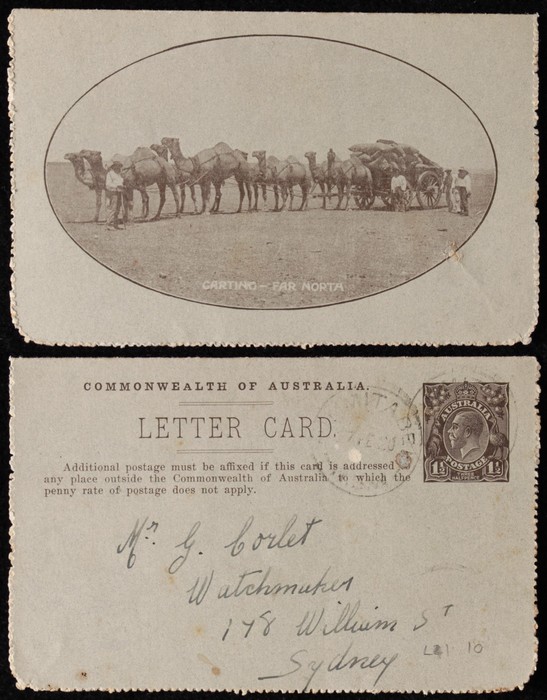 CARTING – FAR NORTH
COMMONWEALTH OF AUSTRALIA.
LETTER CARD.
Additional postage must be affixed if this card is addressed to
any place outside the Commonwealth of Australia to which the
penny rate of postage does not apply.
AUSTRALIA
1½ POSTAGE 1½
Mr. G. Corlet
Watchmaker
178 William St
Sydney
10